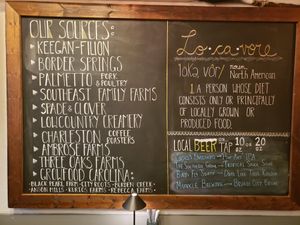 OUR SOURCES:
KEEGAN-FILION
BORDER SPRINGS
PALMETTO PORK & POULTRY
SOUTHEAST FAMILY FARMS
SPADE & CLOVER
LOWCOUNTRY CREAMERY
CHARLESTON COFFEE ROASTERS
AMBROSE FARMS
THREE OAKS FARMS
GROWFOOD CAROLINA:
BLACK PEARL FARM CITY ROOTS BURDEN CREEK
KURIOS FARMS REBECCA FARMS
Lo·ca·vore
noun
North American
1. A PERSON WHOSE DIET
CONSISTS ONLY OR PRINCIPALLY
OF LOCALLY GROWN OR
PRODUCED FOOD.
LOCAL BEER ON TAP 10 oz 20 oz